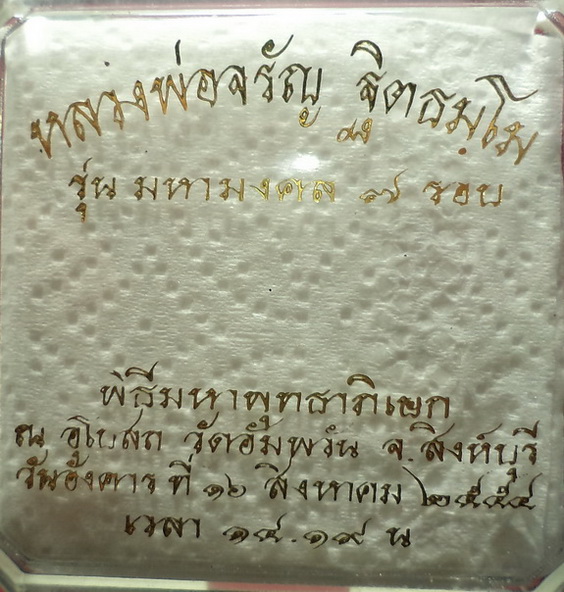 หลวงพ่อจรัญ ฐิตธมฺโม
รุ่น มหามงคล ๗ รอบ
พิธีมหาพุทธาภิเษก
ณ อุโบสถ วัดอัมพวัน จ.สิงห์บุรี
วันอังคาร ที่ ๑๖ สิงหาคม ๒๕๕๔
เวลา ๑๔.๑๙ น